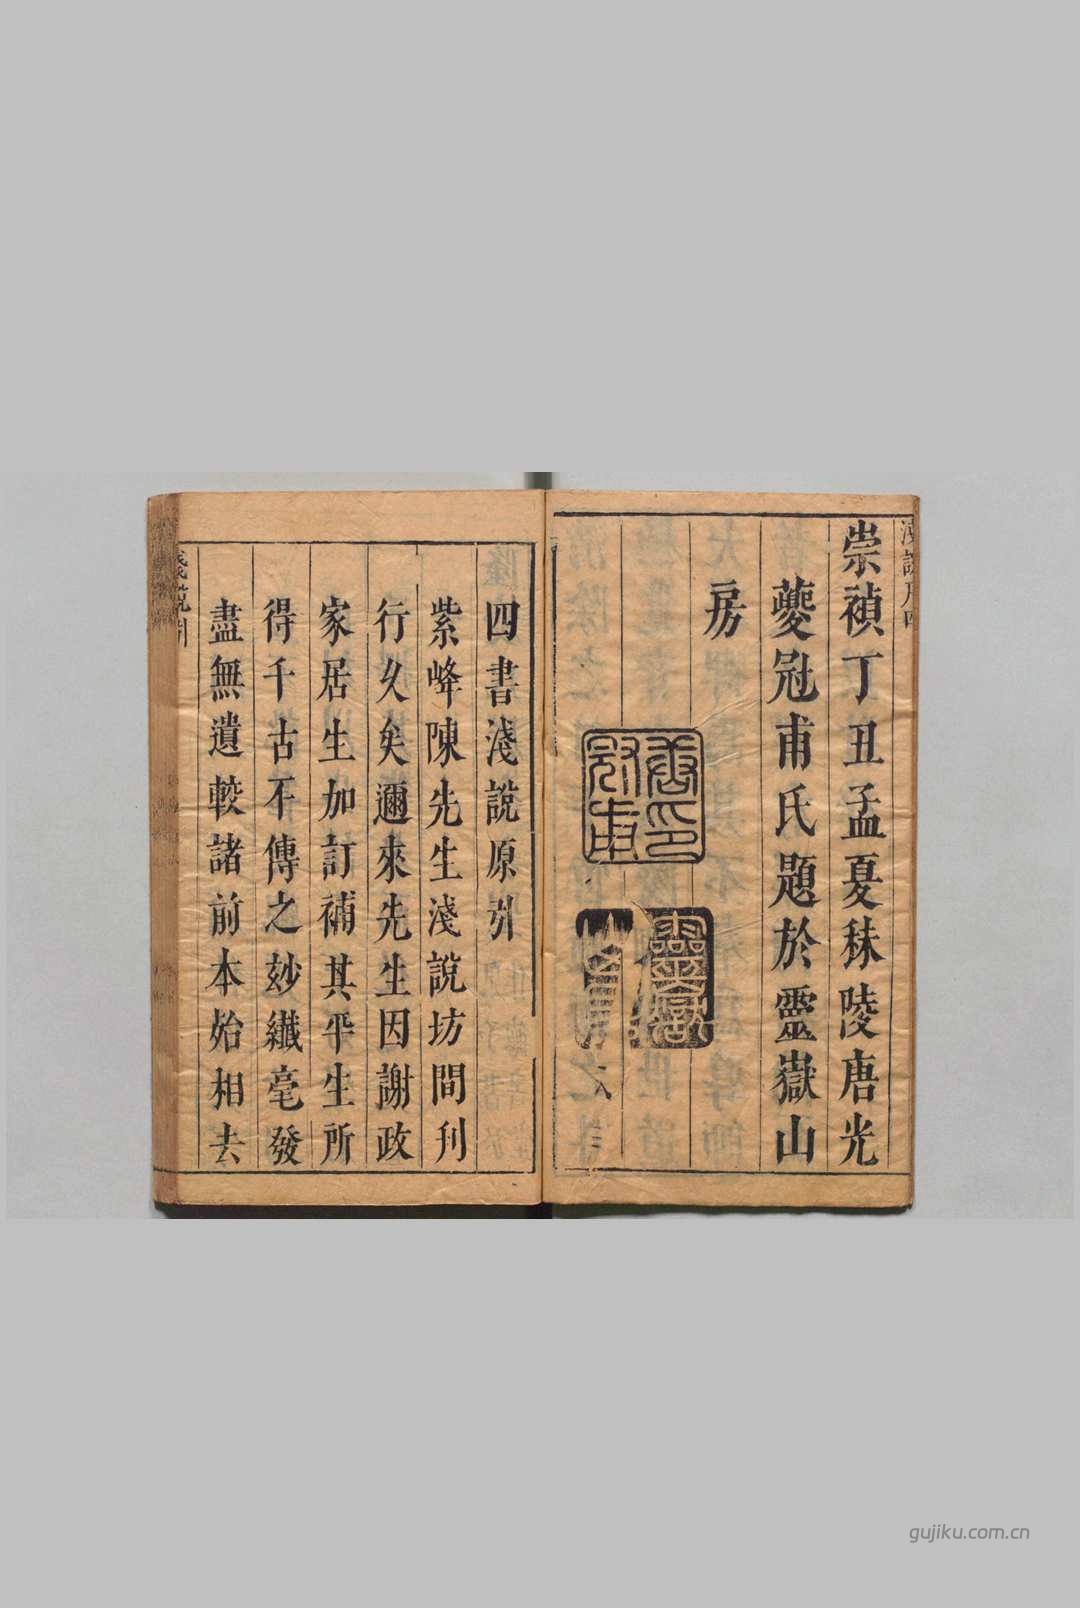 崇禎丁丑孟夏秣陵唐光
夔冠甫氏題於靈嶽山
房
四書淺說原引
紫峰陳先生淺說坊間刊
行久矣邇來先生因謝政
家居生加訂補其平生所
得千古不傳之玅纖毫發
盡無遺較諸前本始相去
gujiku.com.cn